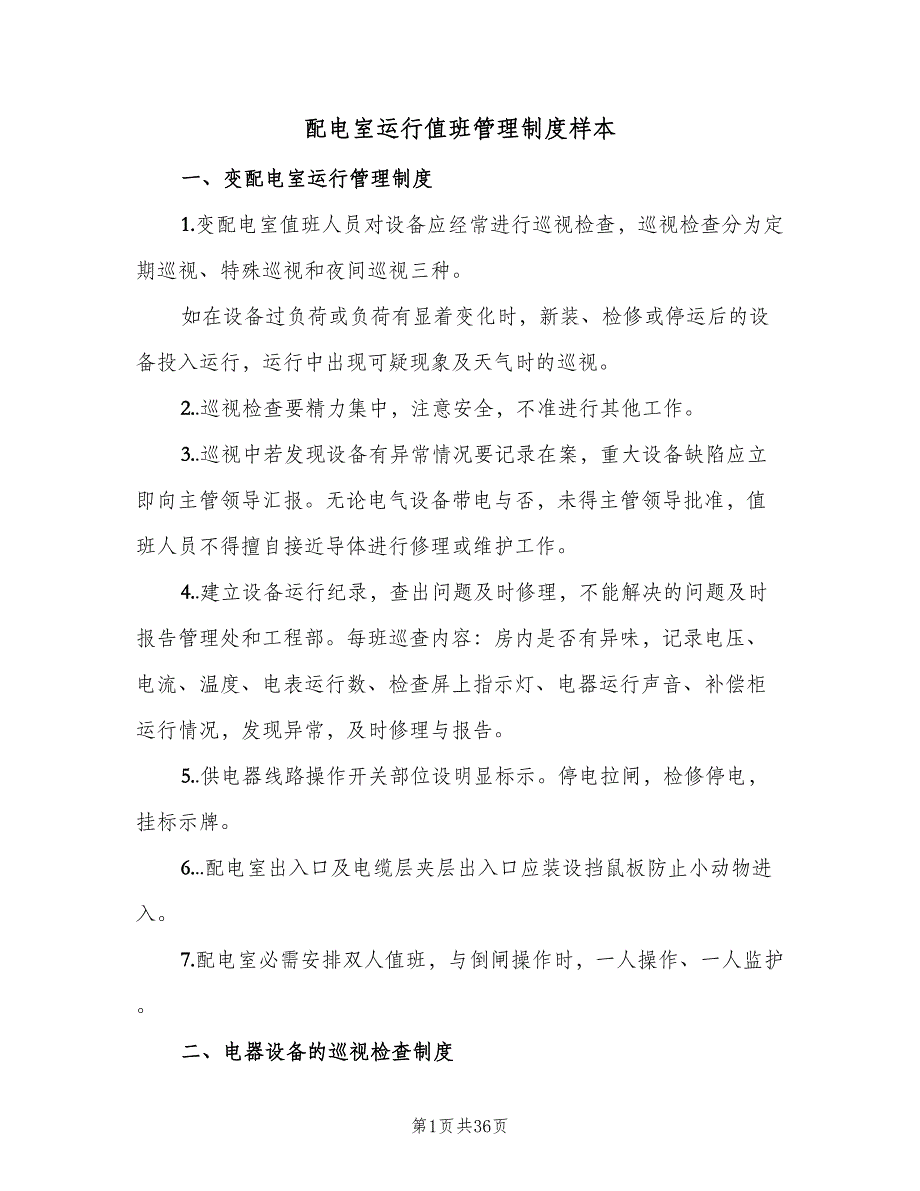 配电室运行值班管理制度样本
一、变配电室运行管理制度
1.变配电室值班人员对设备应经常进行巡视检查，巡视检查分为定
期巡视、特殊巡视和夜间巡视三种。
如在设备过负荷或负荷有显着变化时，新装、检修或停运后的设
备投入运行，运行中出现可疑现象及天气时的巡视。
2..巡视检查要精力集中，注意安全，不准进行其他工作。
3..巡视中若发现设备有异常情况要记录在案，重大设备缺陷应立
即向主管领导汇报。无论电气设备带电与否，未得主管领导批准，值
班人员不得擅自接近导体进行修理或维护工作。
4..建立设备运行纪录，查出问题及时修理，不能解决的问题及时
报告管理处和工程部。每班巡查内容：房内是否有异味，记录电压、
电流、温度、电表运行数、检查屏上指示灯、电器运行声音、补偿柜
运行情况，发现异常，及时修理与报告。
5..供电器线路操作开关部位设明显标示。停电拉闸，检修停电，
挂标示牌。
6...配电室出入口及电缆层夹层出入口应装设挡鼠板防止小动物进
入。
7.配电室必需安排双人值班，与倒闸操作时，一人操作、一人监护
。
二、电器设备的巡视检查制度
第1页共36页